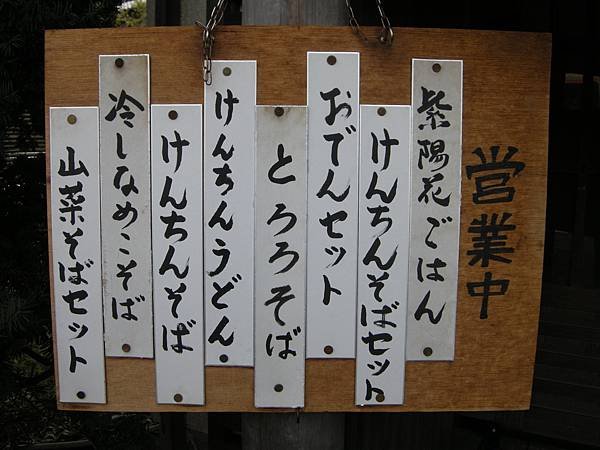 営業中
紫陽花ごはん
けんちんそばセット
おでんセット
とろろそば
けんちんうどん
けんちんそば
冷しなめこそば
山菜そばセット